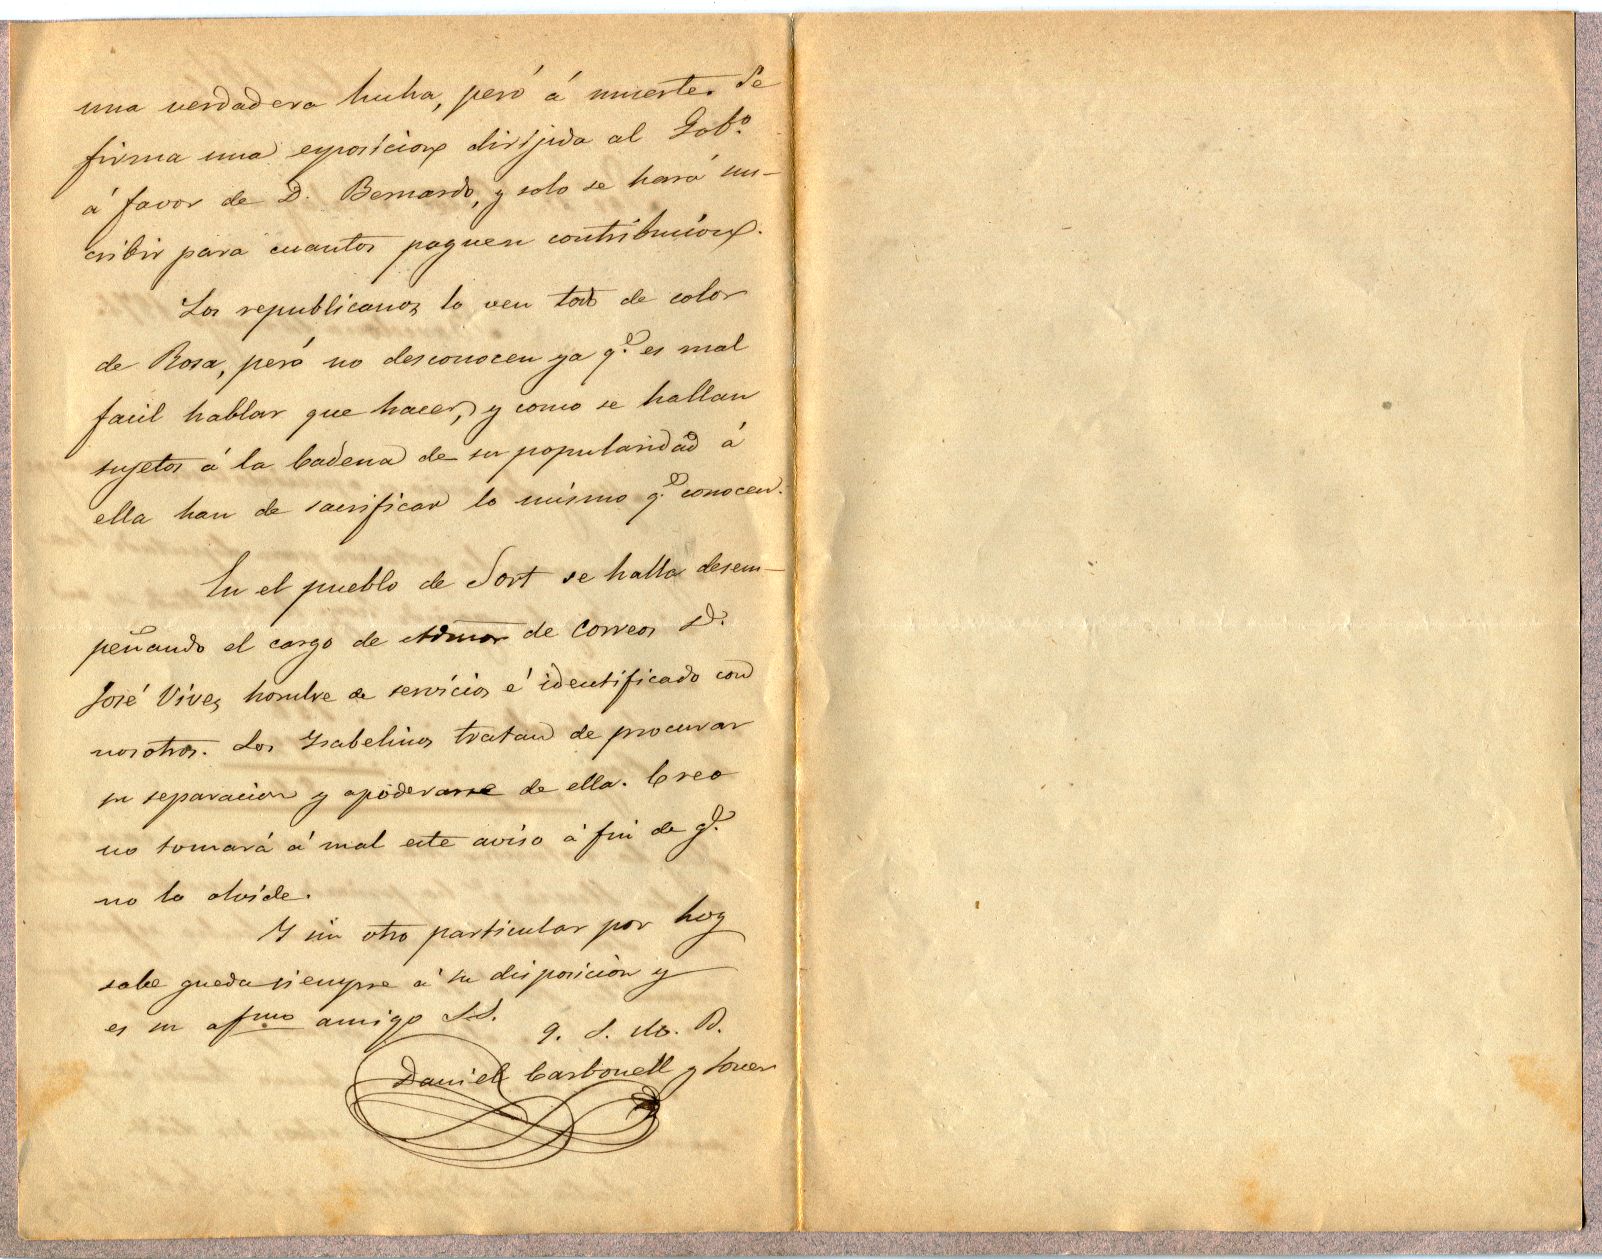 una verdadera lucha, peró á muerte. Se
firma una exposicion dirijida al Gobº.
á favor de D. Bernardo, y solo se hará sus-
cribir para cuantos paguen contribucion.
Los republicanos lo ven todo de color
de Rosa, peró no desconocen ya q.e es mal
facil hablar que hacer, y como se hallan
sujetos á la Cadena de su popularidad á
ella han de sacrificar lo mismo q.e conocen.
En el pueblo de Sort se halla desem-
peñando el cargo de Admor de Correos D.
José Vives, hombre de servicios é identificado con
nosotros. Los Ysabelinos tratan de procurar
su separacion y apoderarse de ella. Creo
no tomará á mal este aviso á fin de q.e
no lo olvide.
Y sin otro particular por hoy
sabe queda siempre á su disposicion y
es su afmo amigo S.S.
q. s. M. B.
Daniel Carbonell y